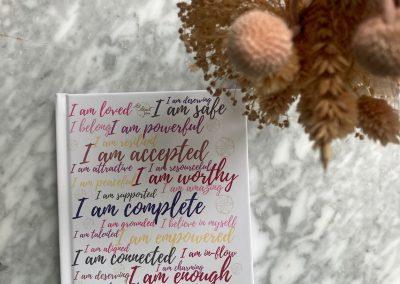 I am loved
I am deserving
I am safe
I belong
I am powerful
I am resilient
I am accepted
I am attractive
I am resourceful
I am peaceful
I am worthy
I am amazing
I am supported
I am complete
I am grounded
I believe in myself
I am talented
I am empowered
I am aligned
I am connected
I am in-flow
I am charming
I am deserving
I am enough